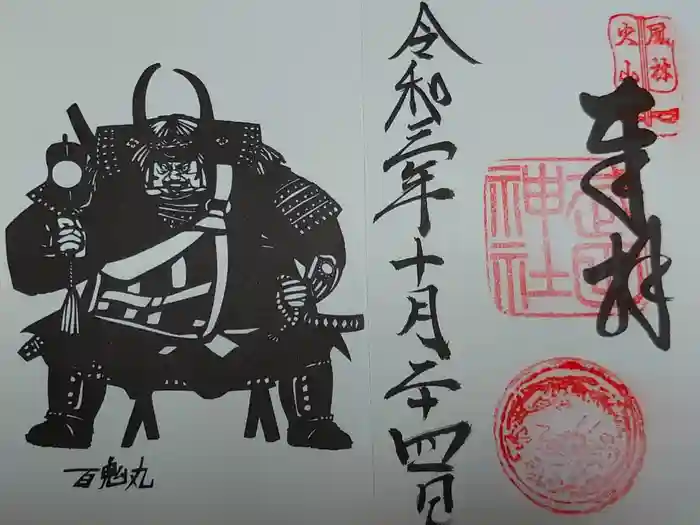 奉拝
風林
火山
武田
神社
令和三年十月二十四日
百鬼丸